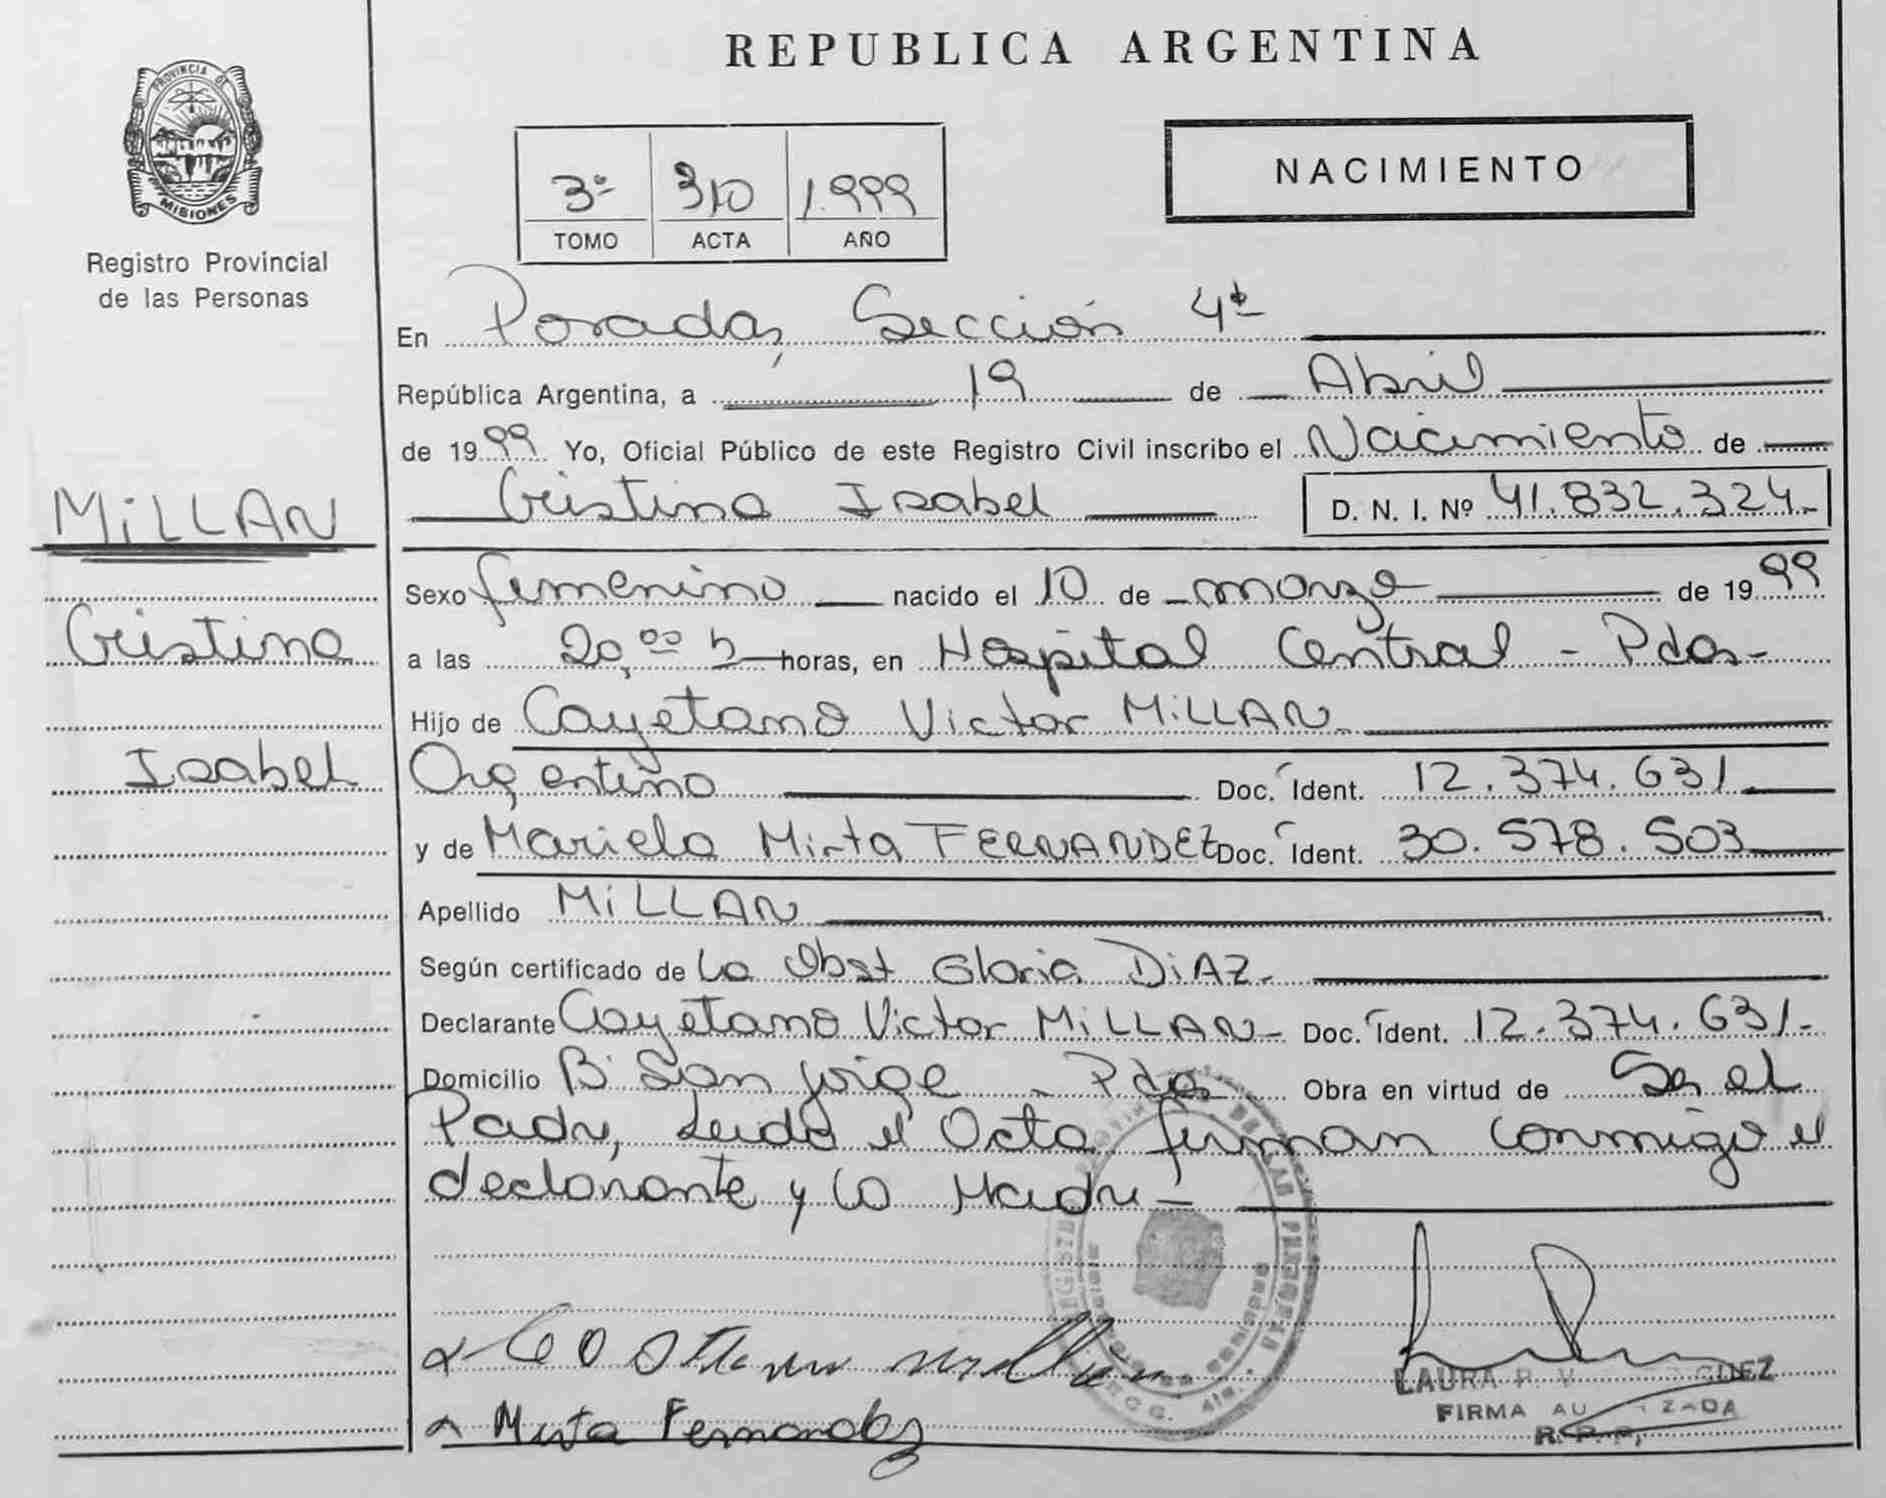 REPUBLICA ARGENTINA
PROVINCIA DE
MISIONES
Registro Provincial
de las Personas
3º 310 1.999
TOMO ACTA AÑO
NACIMIENTO
En Posadas, Sección 4ta
República Argentina, a 19 de Abril
de 1999 Yo, Oficial Público de este Registro Civil inscribo el Nacimiento de
Cristina Isabel D. N. I. Nº 41.832.324.-
MILLAN
Cristina
Isabel
Sexo femenino nacido el 10 de marzo de 1999
a las 20,00 h horas, en Hospital Central - Pdas-
Hijo de Cayetano Victor MILLAN
Argentino Doc. Ident. 12.374.631
y de Mariela Mirta FERNANDEZ Doc. Ident. 30.578.503
Apellido MILLAN
Según certificado de La Obst Gloria DIAZ-
Declarante Cayetano Victor MILLAN- Doc. Ident. 12.374.631.-
Domicilio Bº San Jorge - Pdas Obra en virtud de Ser el
Padre, Leida el Acta firman conmigo el
declarante y la Madre-
Mirta Fernandez
LAURA R.
FIRMA
R.P.P.